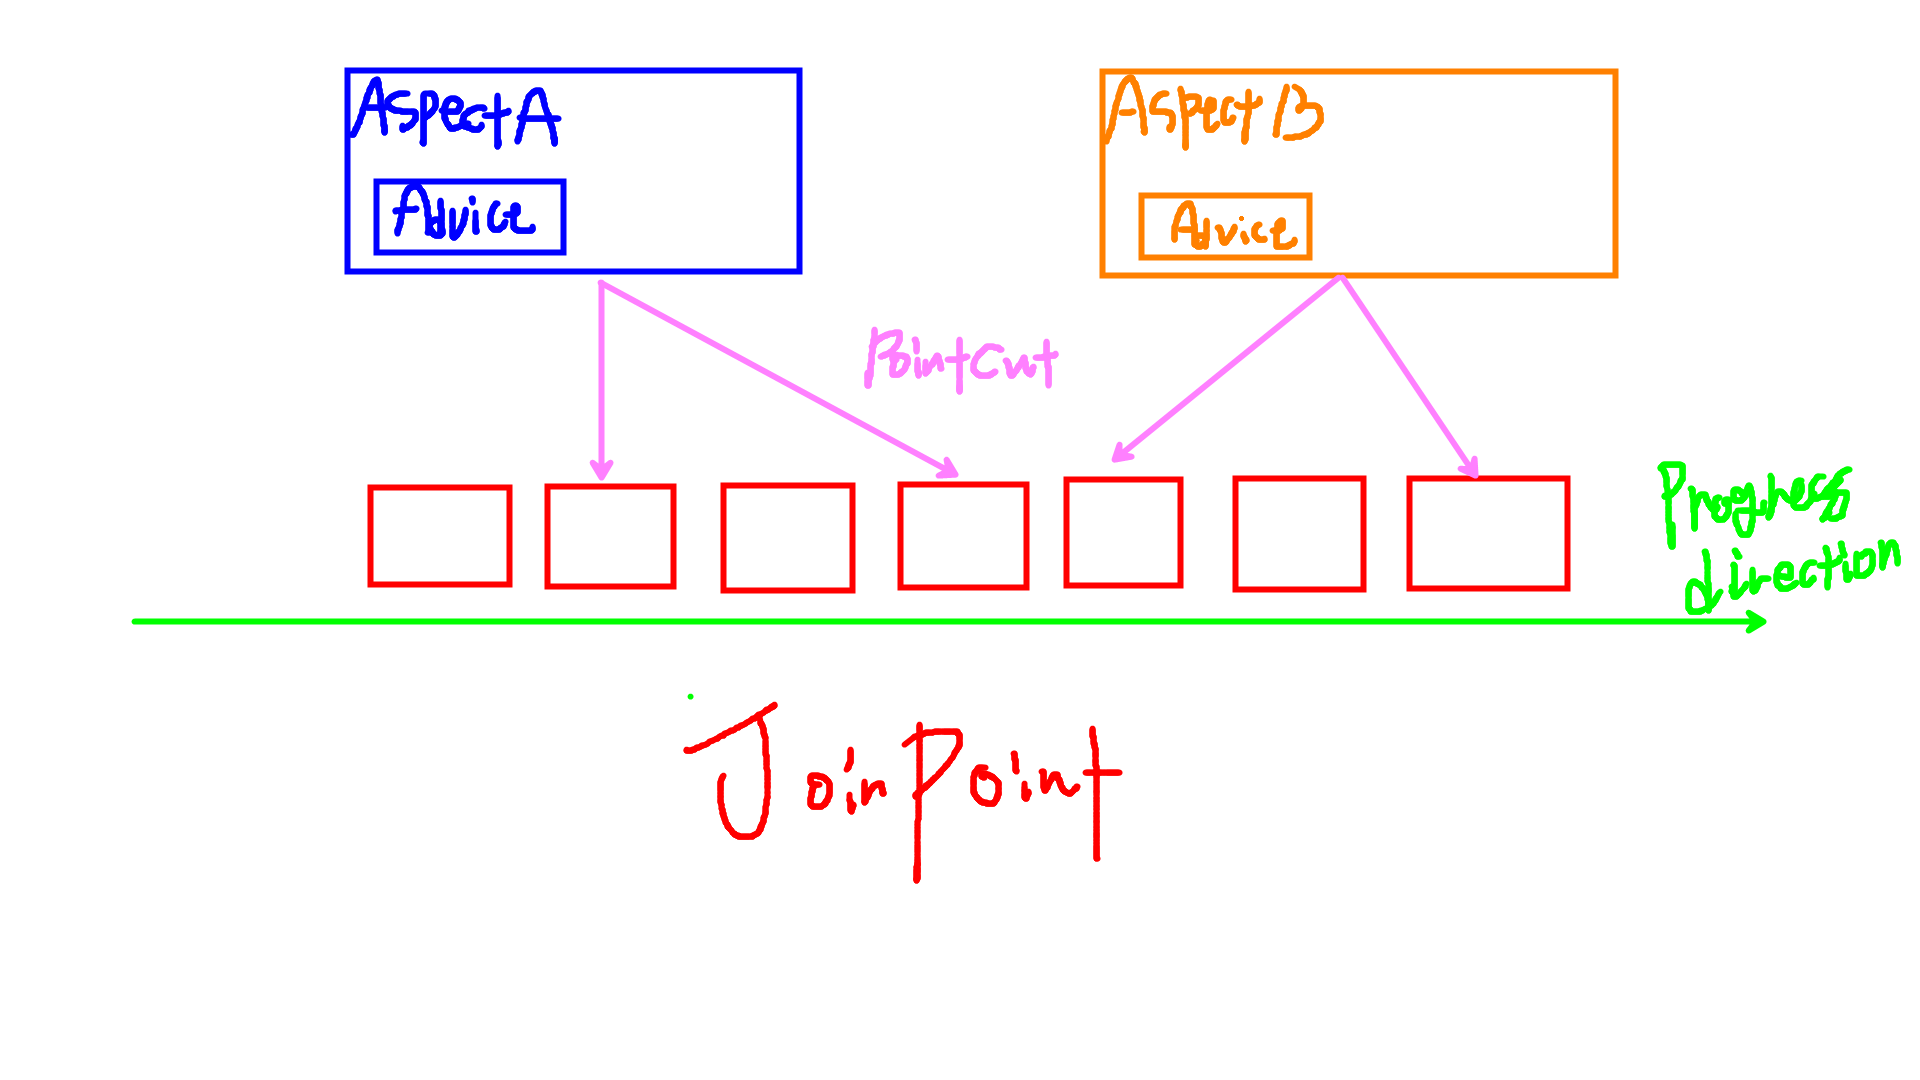 Aspect A
Aspect B
Advice
Advice
PointCut
Progress
direction
JoinPoint